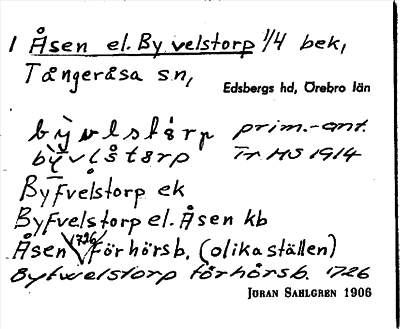 1 Åsen el. By velstorp 1/4 bek,
Tångeråsa sn,
Edsbergs hd, Örebro län
prim.-ant.
Tr. HS 1914
Byfvelstorp ek
Byfvelstorp el. Åsen kb
Åsen 1726 Förhörsb. (olika ställen)
Byfwelstorp förhörsb. 1726
Jöran Sahlgren 1906